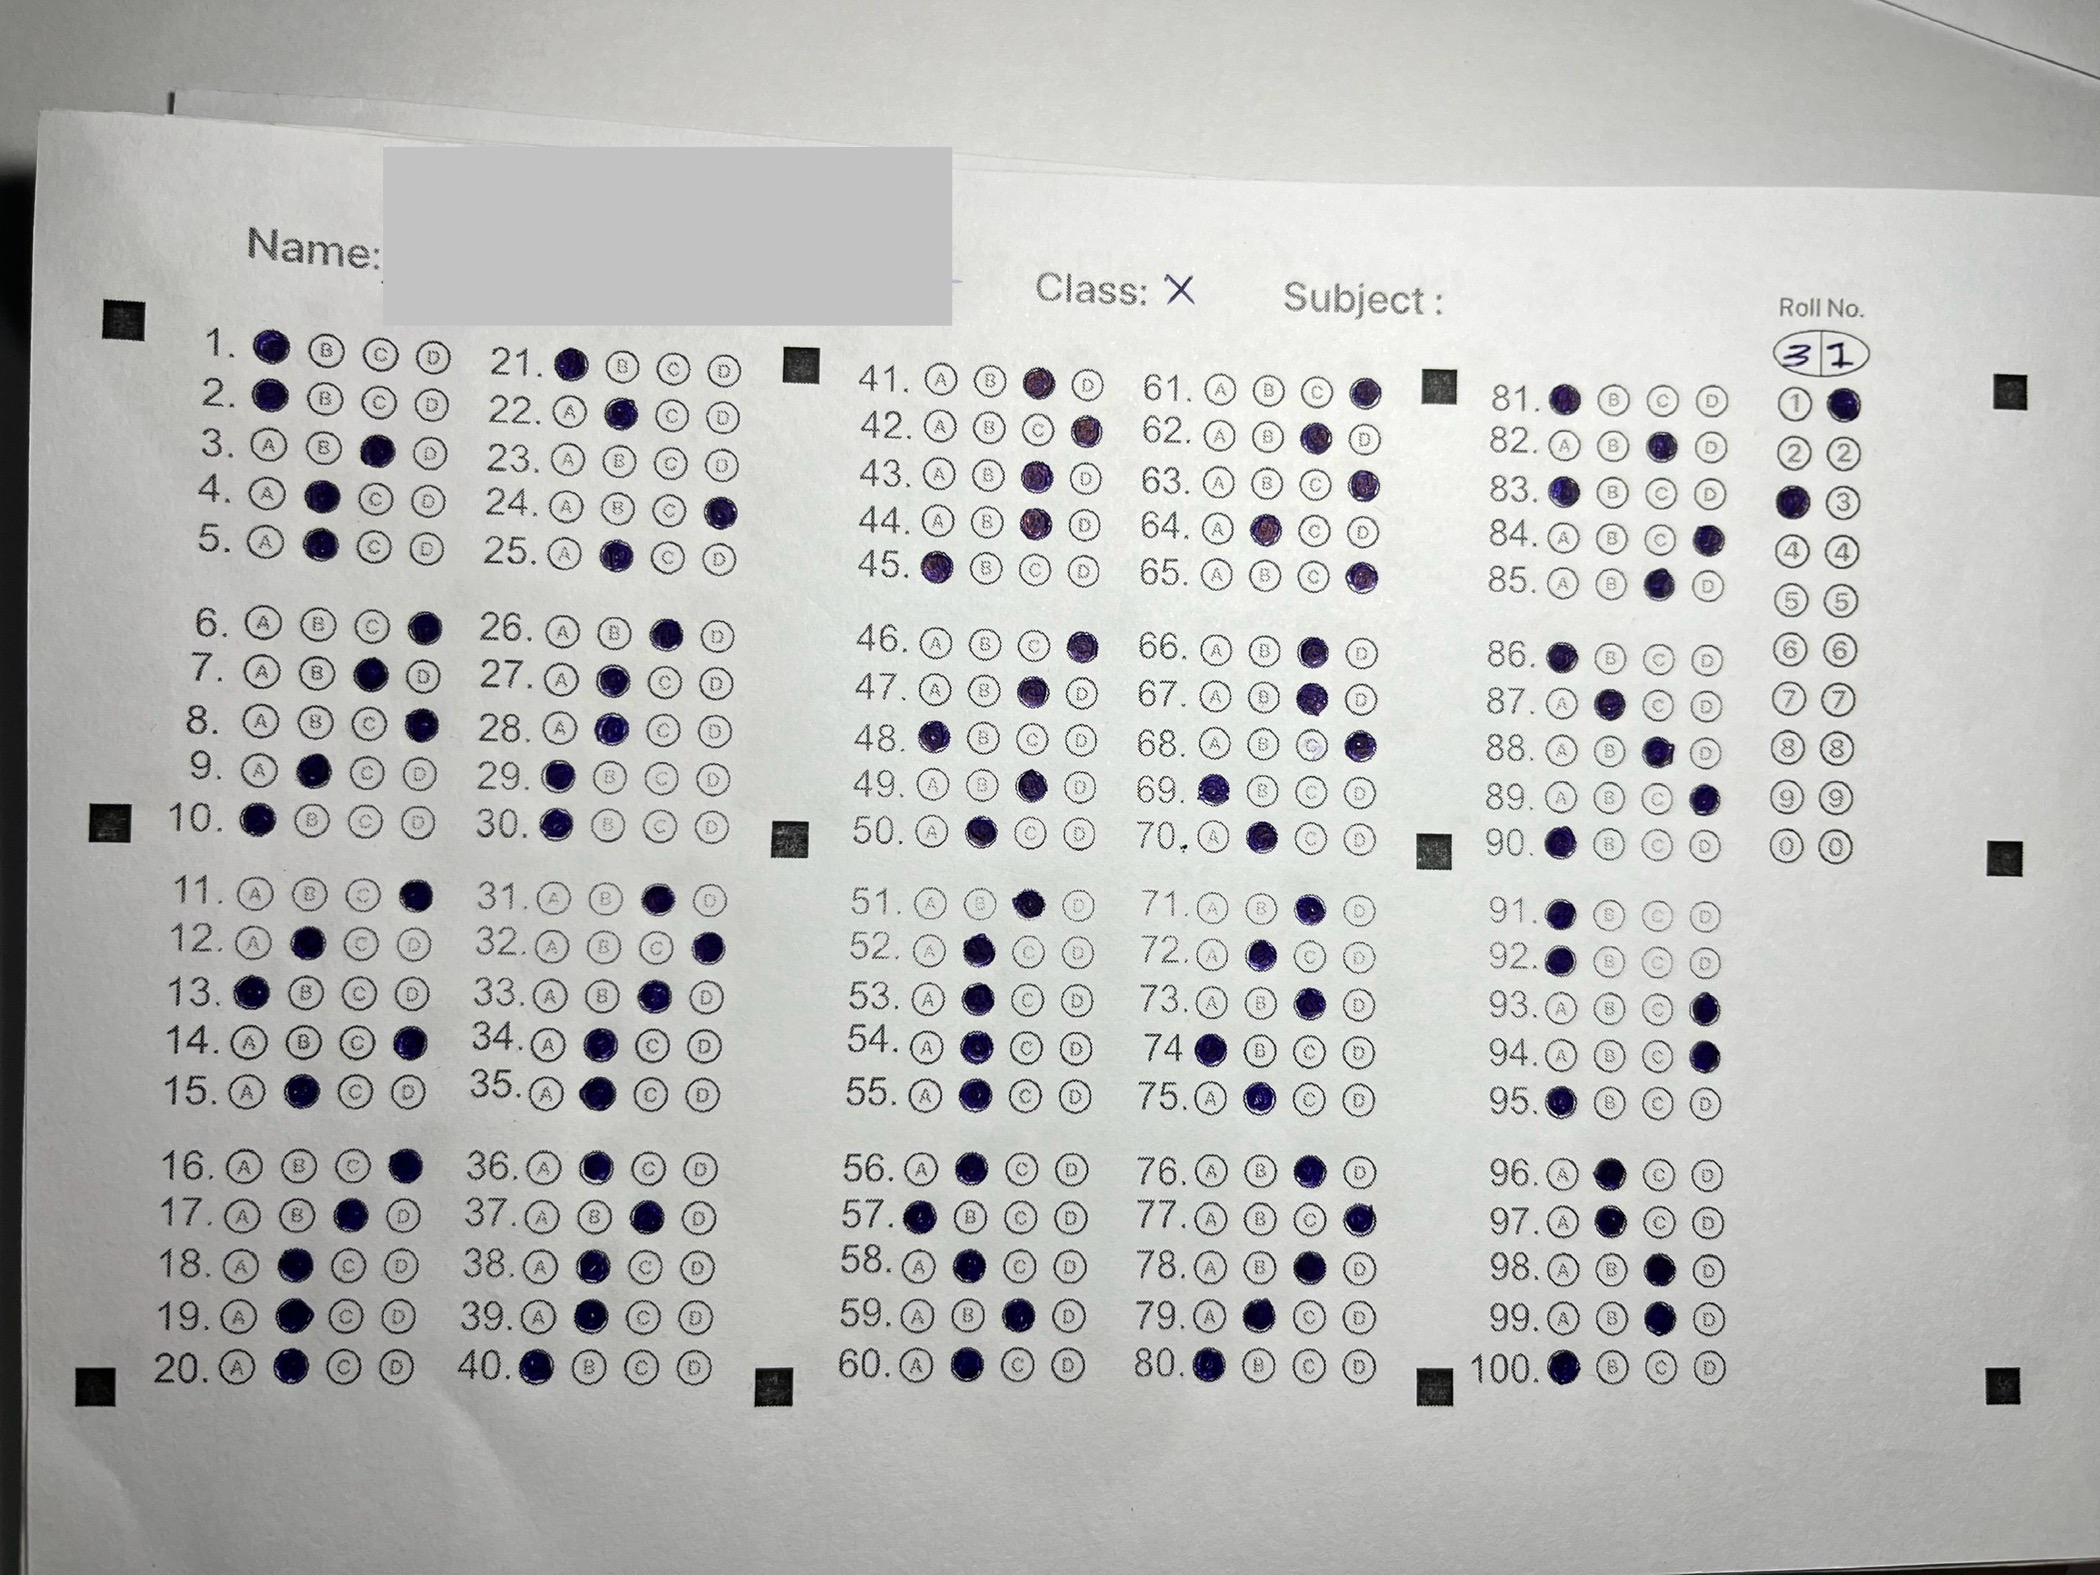 Name:
Class: X Subject :
Roll No.
3 1
1. B C D
2. B C D
3. A B D
4. A C D
5. A C D
6. A B C
7. A B D
8. A B C
9. A C D
10. B C D
11. A B C
12. A C D
13. B C D
14. A B C
15. A C D
16. A B C
17. A B D
18. A C D
19. A C D
20. A C D
21. B C D
22. A C D
23. A B C D
24. A B C
25. A C D
26. A B D
27. A C D
28. A C D
29. B C D
30. B C D
31. A B D
32. A B C
33. A B D
34. A C D
35. A C D
36. A C D
37. A B D
38. A C D
39. A C D
40. B C D
41. A B D
42. A B C
43. A B D
44. A B D
45. B C D
46. A B C
47. A B D
48. B C D
49. A B D
50. A C D
51. A B D
52. A C D
53. A C D
54. A C D
55. A C D
56. A C D
57. B C D
58. A C D
59. A B D
60. A C D
61. A B C
62. A B D
63. A B C
64. A C D
65. A B C
66. A B D
67. A B D
68. A B C
69. B C D
70. A C D
71. A B D
72. A C D
73. A B D
74 B C D
75. A C D
76. A B D
77. A B C
78. A B D
79. A C D
80. B C D
81. B C D
82. A B D
83. B C D
84. A B C
85. A B D
86. B C D
87. A C D
88. A B D
89. A B C
90. B C D
91. B C D
92. B C D
93. A B C
94. A B C
95. B C D
96. A C D
97. A C D
98. A B D
99. A B D
100. B C D
1
2 2
3
4 4
5 5
6 6
7 7
8 8
9 9
0 0